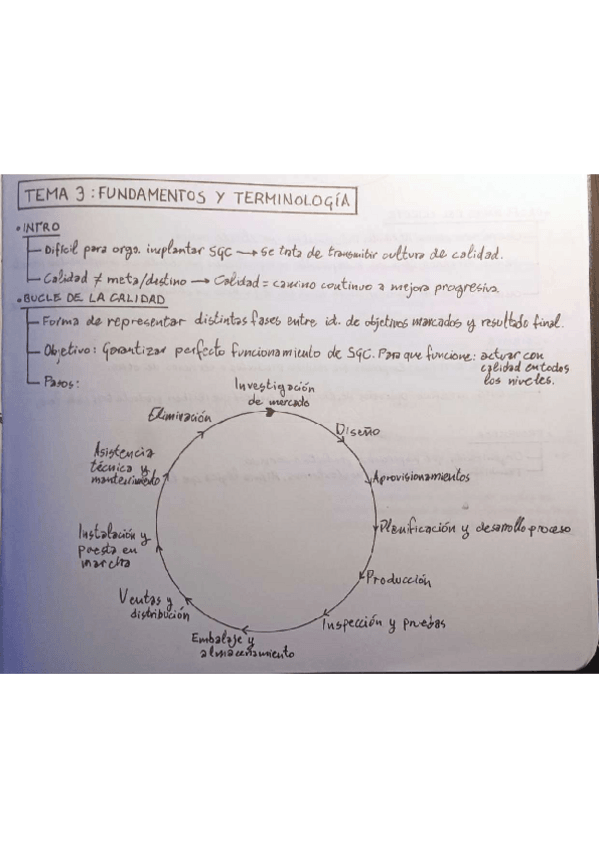 TEMA 3: FUNDAMENTOS Y TERMINOLOGÍA
• INTRO
Difícil para orgo. implantar SGC → Se trata de transmitir cultura de calidad.
Calidad ≠ meta/destino → Calidad = camino continuo a mejora progresiva.
• BUCLE DE LA CALIDAD
Forma de representar distintas fases entre id. de objetivos marcados y resultado final.
Objetivo: Garantizar perfecto funcionamiento de SGC. Para que funcione: actuar con
calidad en todos
los niveles.
Pasos:
Investigación
de mercado
Diseño
Aprovisionamientos
Planificación y desarrollo proceso
Producción
Inspección y pruebas
Embalaje y
almacenamiento
Ventas y
distribución
Instalación y
puesta en
marcha
Asistencia
técnica y
mantenimiento
Eliminación